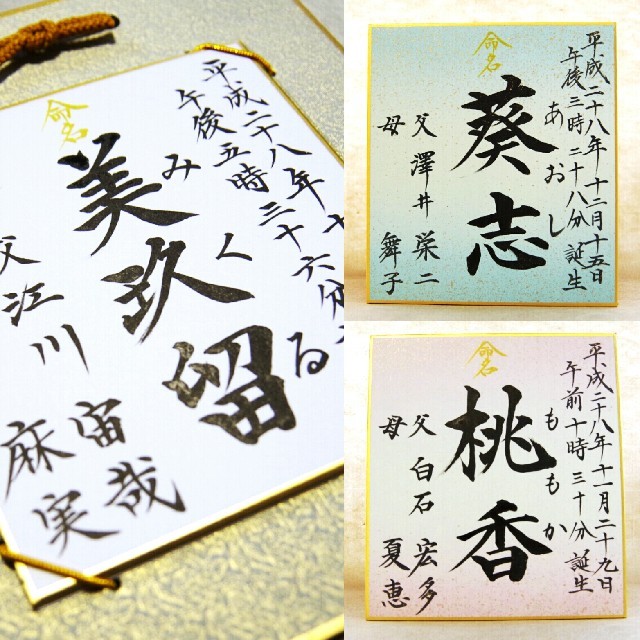 平成二十八年十
午後五時三十六分
命名
美玖留
みくる
父江川宙哉
麻実
平成二十八年十二月十五日
午後三時二十八分誕生
命名
葵志
あおし
父澤井栄二
母舞子
平成二十八年十一月二十九日
午前十時三十分誕生
命名
桃香
ももか
父白石宏多
母夏恵